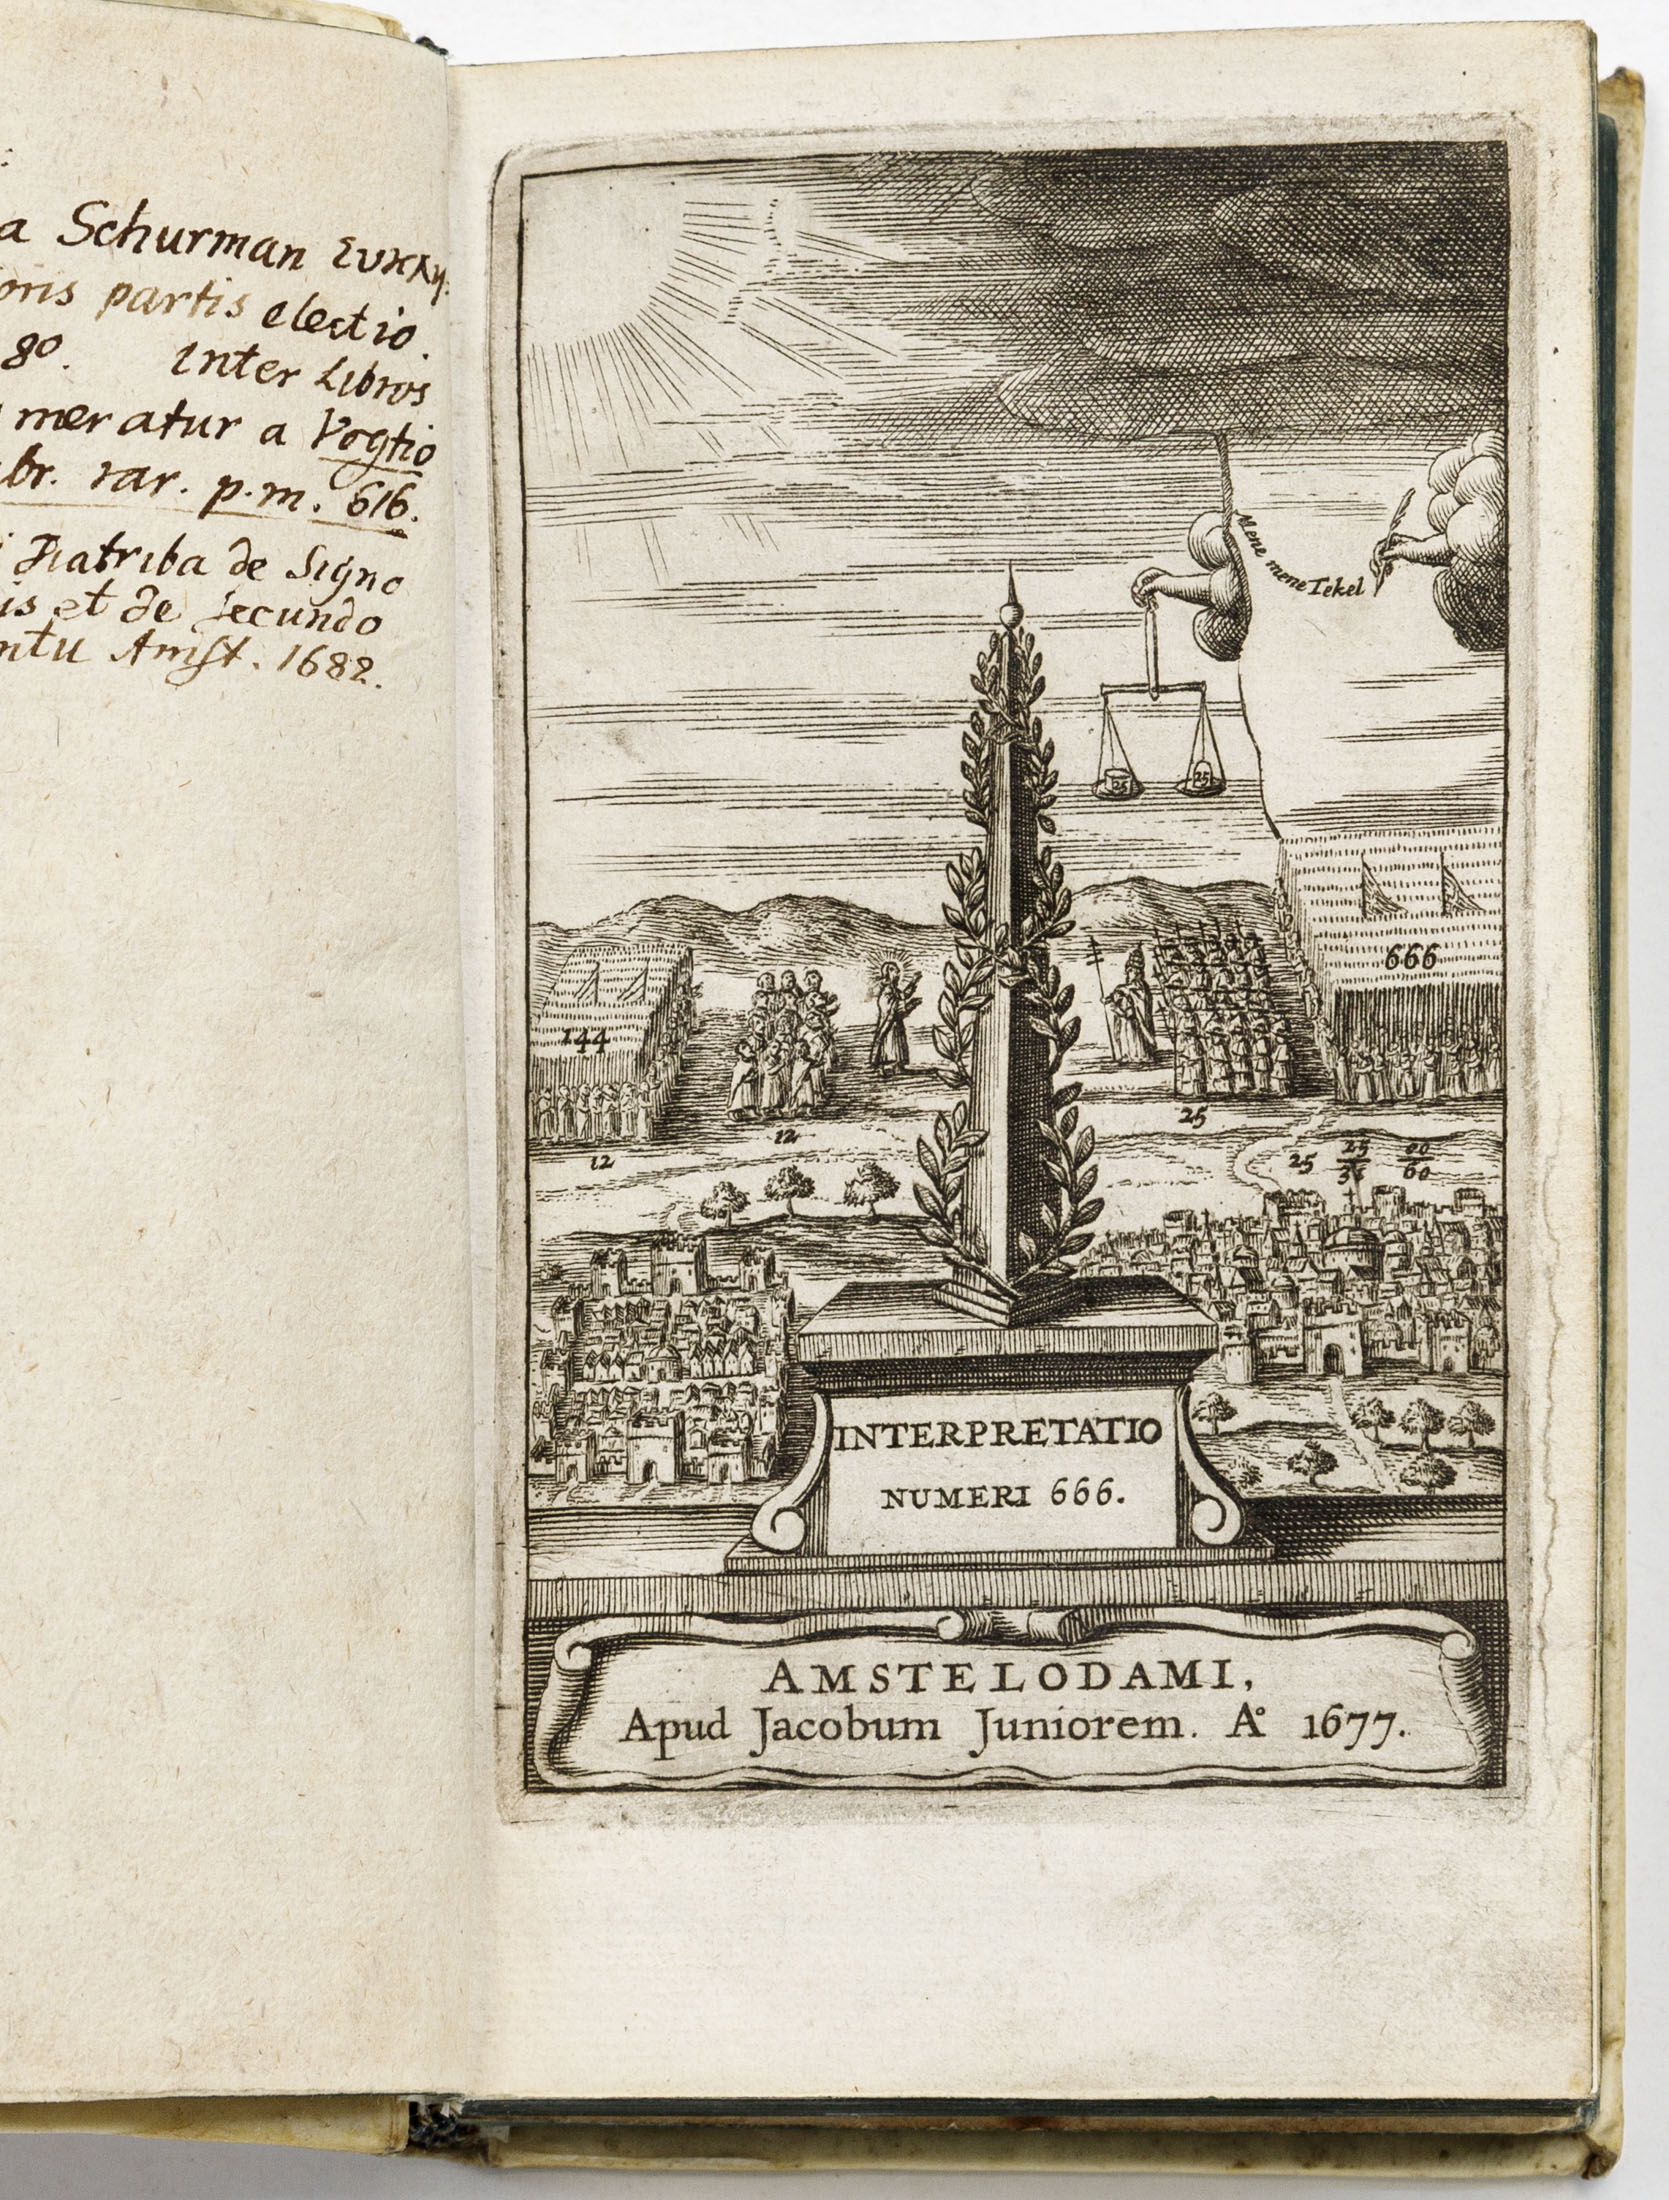 a Schurman ευκλη:
oris partis electio.
80. Inter Libros
meratur a Vogtio
br. rar. p.m. 616.
Diatriba de Signo
is et de secundo
ntu Amst. 1682.
Mene mene Tekel
25 25
666
144
12
12
25
25 25 00
36 60
INTERPRETATIO
NUMERI 666.
AMSTELODAMI,
Apud Jacobum Juniorem. A° 1677.